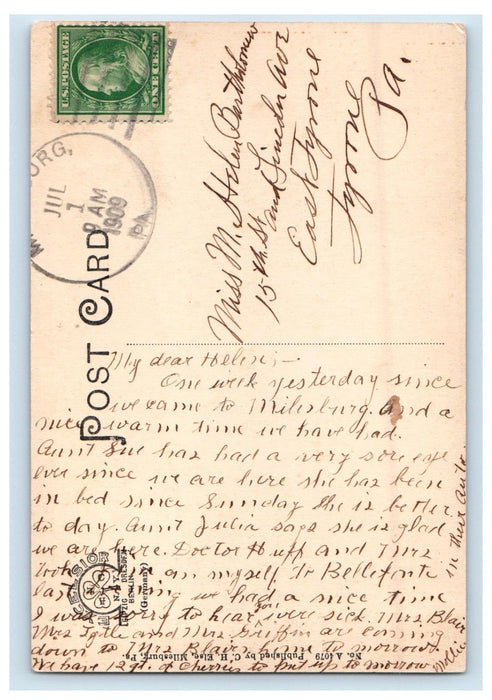 U.S. POSTAGE
ONE CENT
ORG,
JUL
1
9 AM
1909
PA.
POST CARD
Miss M. Helen Bartholomew
15th St and Lincoln Ave
East Tyrone
Tyrone
Pa.
My dear Helen;-
One week yesterday since
we came to Milesburg. And a
nice warm time we have had.
Aunt Sue has had a very sore eye
ever since we are here she has been
in bed since Sunday She is better
to day. Aunt Julia says she is glad
we are here. Doctor Huff and Mrs
took I am myself To Bellefonte
last we had a nice time
in their auto.
I was sorry to hear you were sick. Mrs Blair
Mrs and Mrs Griffin are coming
down to Mrs Blair's to morrow.
We have 12 qt. of cherries to put up to morrow
Mollie
EXCELSIOR
N.Y.
LEIPZIG DRESDEN
BERLIN
(Germany)
No. A 4079 Published by C. H. Else, Milesburg, Pa.